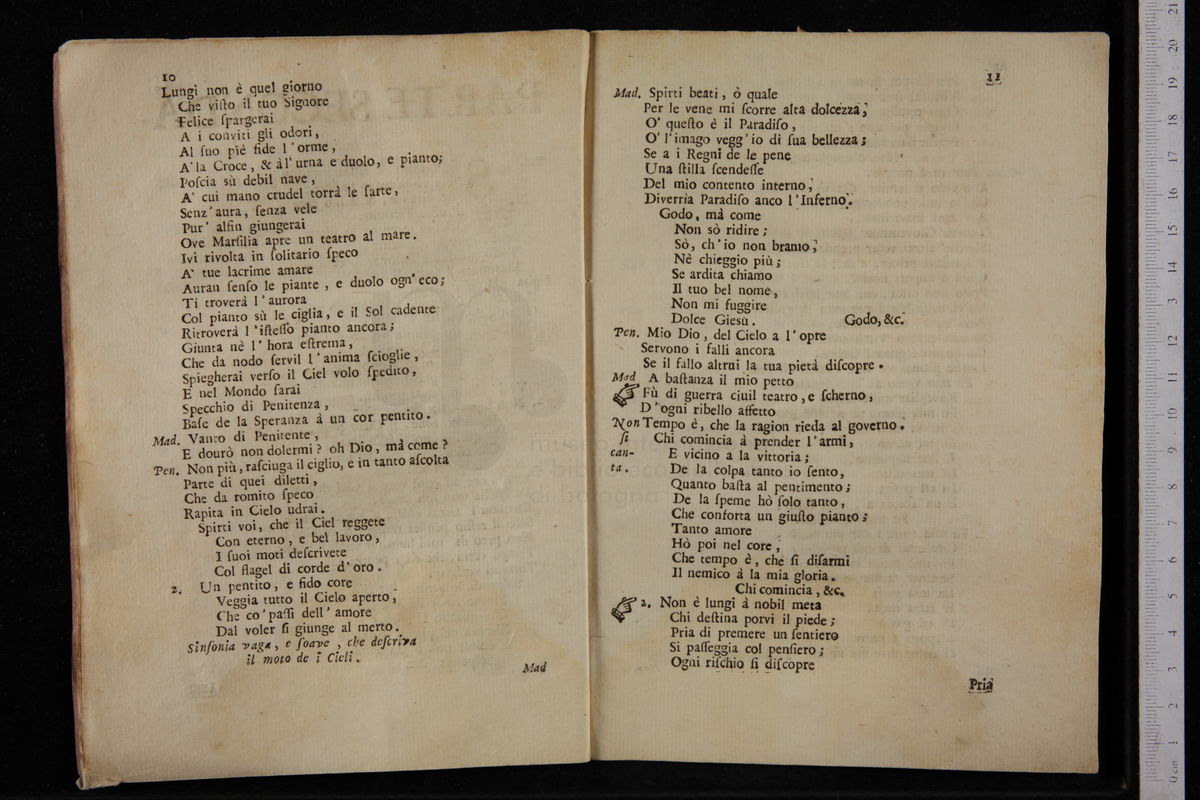 10
Lungi non è quel giorno
Che viſto il tuo Signore
Felice ſpargerai
A i conviti gli odori,
Al ſuo piè fide l'orme,
A'la Croce, & àl'urna e duolo, e pianto;
Poſcia sù debil nave,
A' cui mano crudel torrà le ſarte,
Senz'aura, ſenza vele
Pur' alfin giungerai
Ove Marſilia apre un teatro al mare.
Ivi rivolta in ſolitario ſpeco
A' tue lacrime amare
Auran ſenſo le piante, e duolo ogn'eco;
Ti troverà l'aurora
Col pianto sù le ciglia, e il Sol cadente
Ritroverà l'iſteſſo pianto ancora;
Giunta nè l'hora eſtrema,
Che da nodo ſervil l'anima ſcioglie,
Spiegherai verſo il Ciel volo ſpedito,
E nel Mondo ſarai
Specchio di Penitenza,
Baſe de la Speranza à un cor pentito.
Mad. Vanto di Penitente,
E dourò non dolermi? oh Dio, mà come?
Pen. Non più, raſciuga il ciglio, e in tanto aſcolta
Parte di quei diletti,
Che da romito ſpeco
Rapita in Cielo udrai.
Spirti voi, che il Ciel reggete
Con eterno, e bel lavoro,
I ſuoi moti deſcrivete
Col flagel di corde d'oro.
2. Un pentito, e fido core
Veggia tutto il Cielo aperto,
Che co'paſſi dell'amore
Dal voler ſi giunge al merto.
Sinfonia vaga, e ſoave, che deſcriva
il moto de i Cieli.
Mad
11
Mad. Spirti beati, ò quale
Per le vene mi ſcorre alta dolcezza;
O' queſto è il Paradiſo,
O' l'imago vegg'io di ſua bellezza;
Se a i Regni de le pene
Una ſtilla ſcendeſſe
Del mio contento interno,
Diverria Paradiſo anco l'Inferno.
Godo, mà come
Non sò ridire;
Sò, ch'io non bramo,
Nè chieggio più;
Se ardita chiamo
Il tuo bel nome,
Non mi fuggire
Dolce Giesù. Godo, &c.
Pen. Mio Dio, del Cielo a l'opre
Servono i falli ancora
Se il fallo altrui la tua pietà diſcopre.
Mad A baſtanza il mio petto
☞ Fù di guerra ciuil teatro, e ſcherno,
D'ogni ribello affetto
Non Tempo è, che la ragion rieda al governo.
ſi Chi comincia à prender l'armi,
can- E vicino a la vittoria;
ta. De la colpa tanto io ſento,
Quanto baſta al pentimento;
De la ſpeme hò ſolo tanto,
Che conforta un giuſto pianto;
Tanto amore
Hò poi nel core,
Che tempo è, che ſi diſarmi
Il nemico à la mia gloria.
Chi comincia, &c.
☞ 2. Non è lungi à nobil meta
Chi deſtina porvi il piede;
Pria di premere un ſentiero
Si paſſeggia col penſiero;
Ogni riſchio ſi diſcopre
Pria